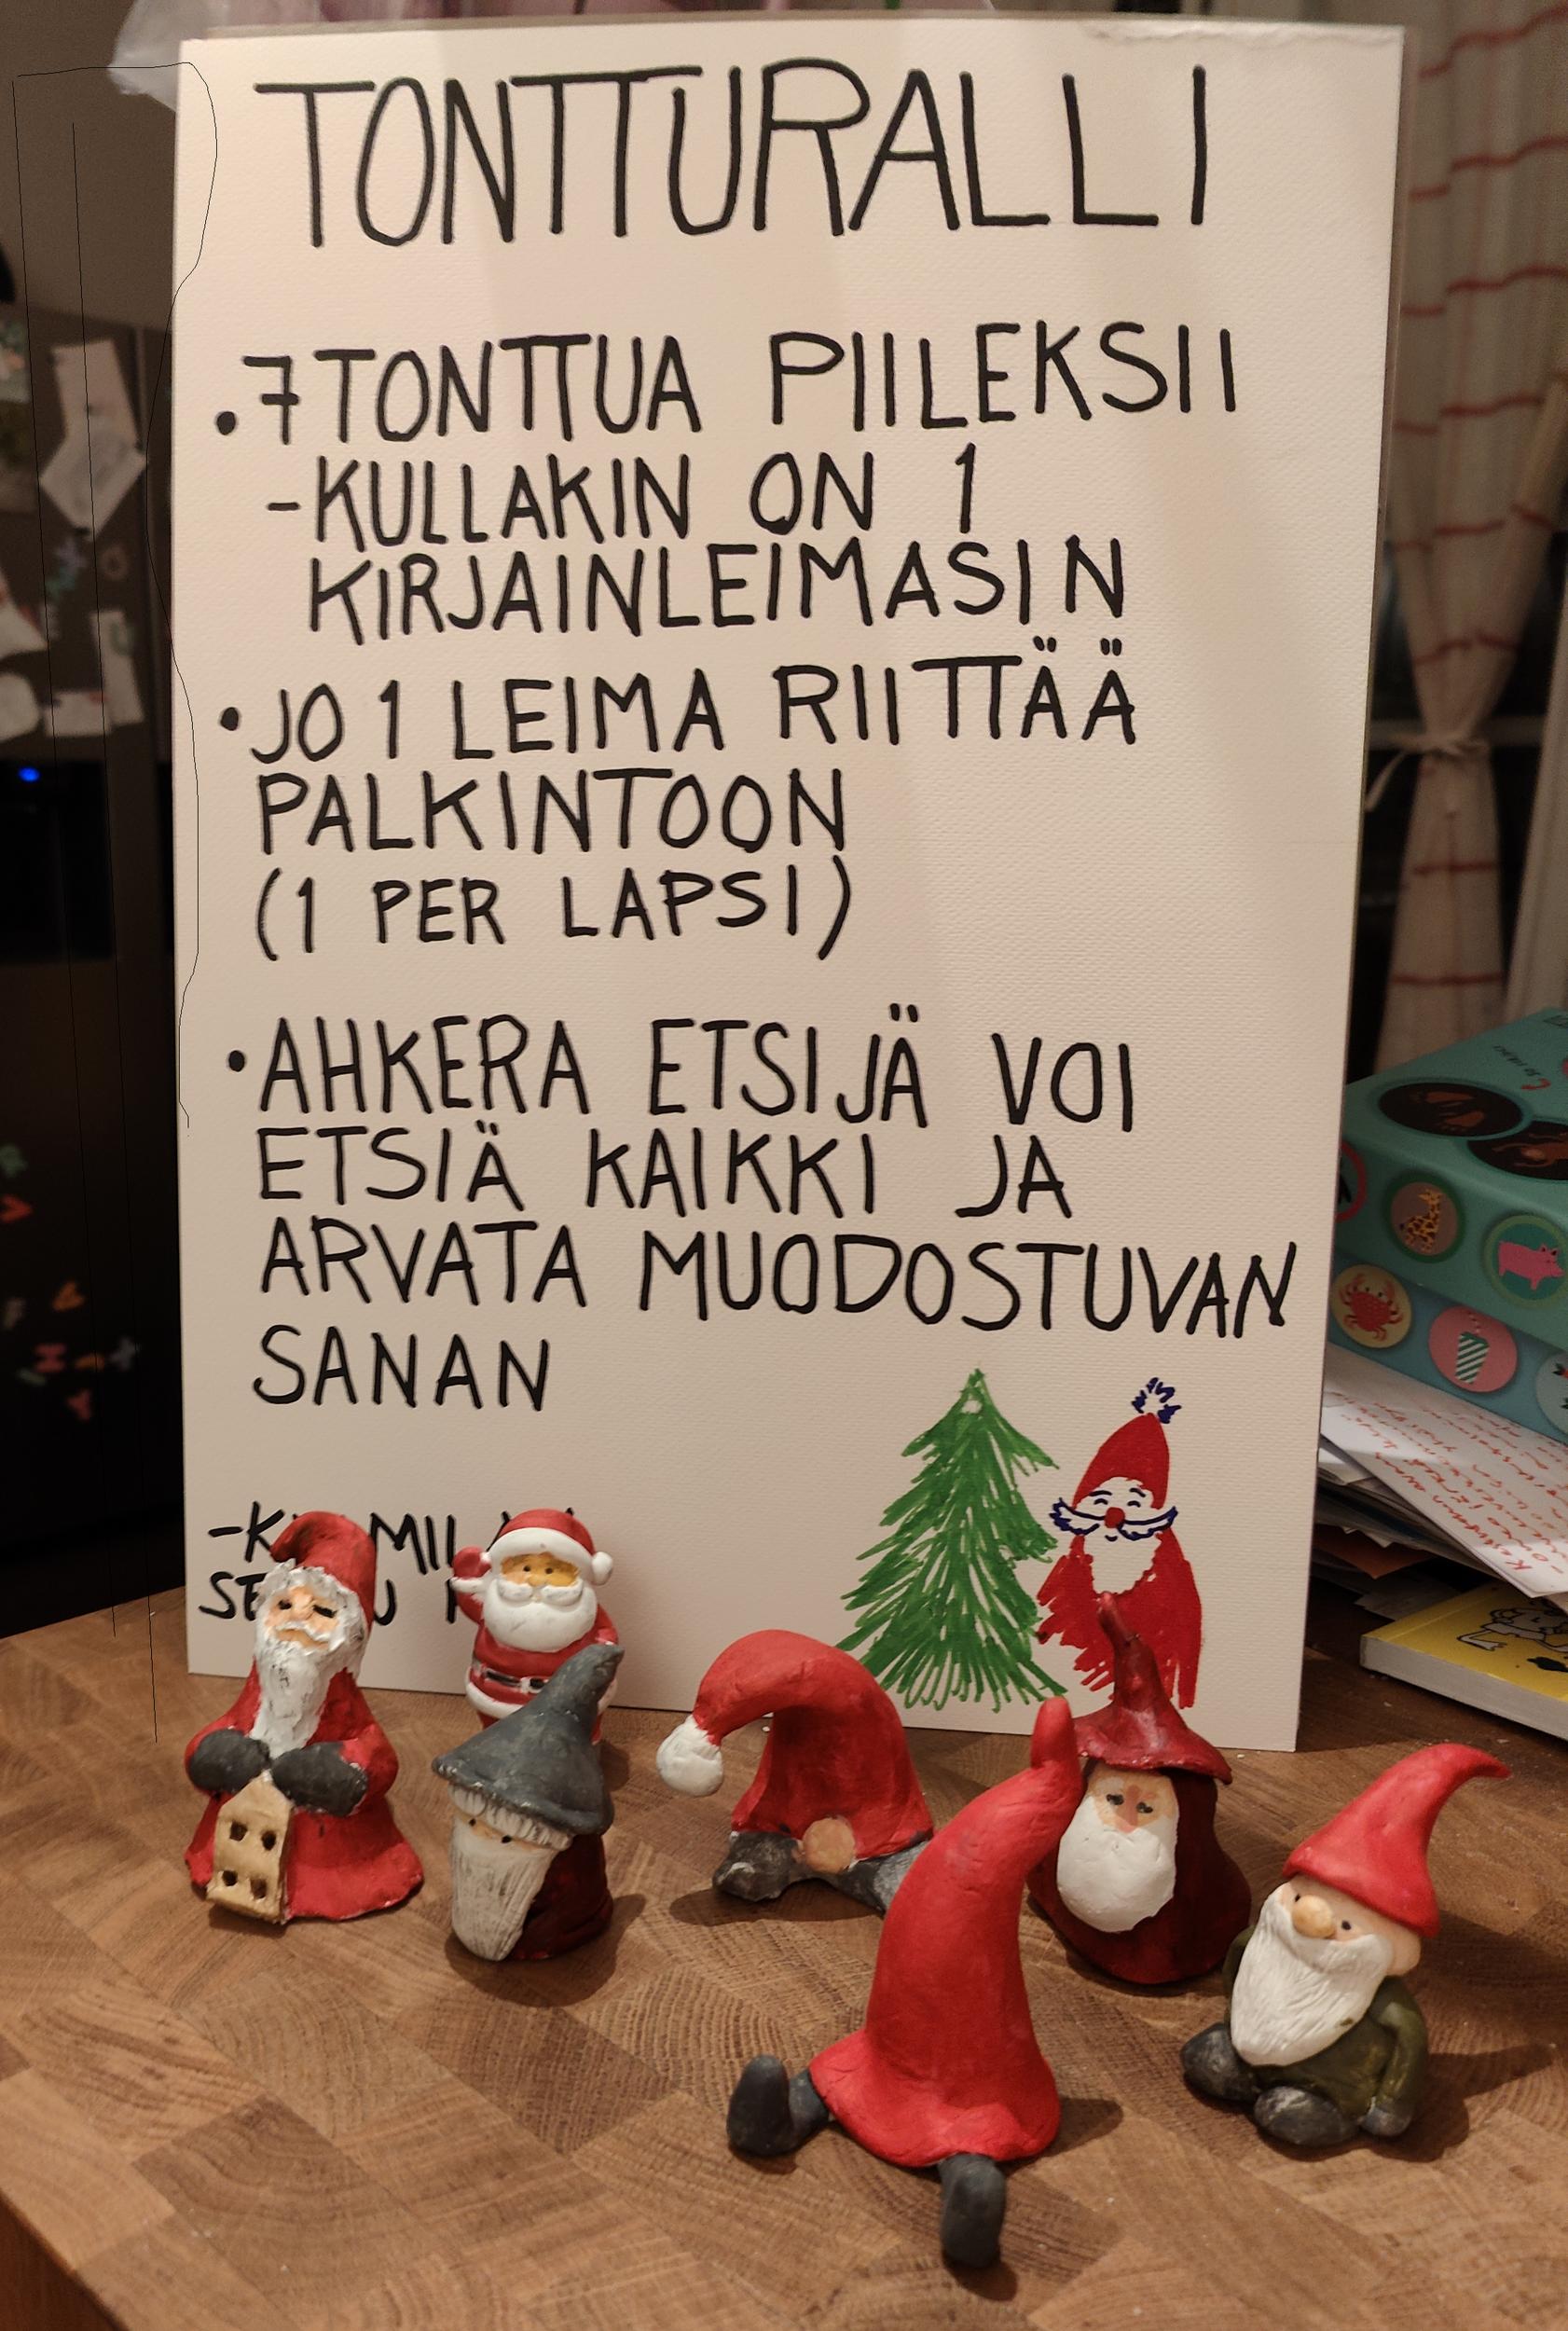 TONTTURALLI
• 7 TONTTUA PIILEKSII
- KULLAKIN ON 1
KIRJAINLEIMASIN
• JO 1 LEIMA RIITTÄÄ
PALKINTOON
(1 PER LAPSI)
• AHKERA ETSIJÄ VOI
ETSIÄ KAIKKI JA
ARVATA MUODOSTUVAN
SANAN